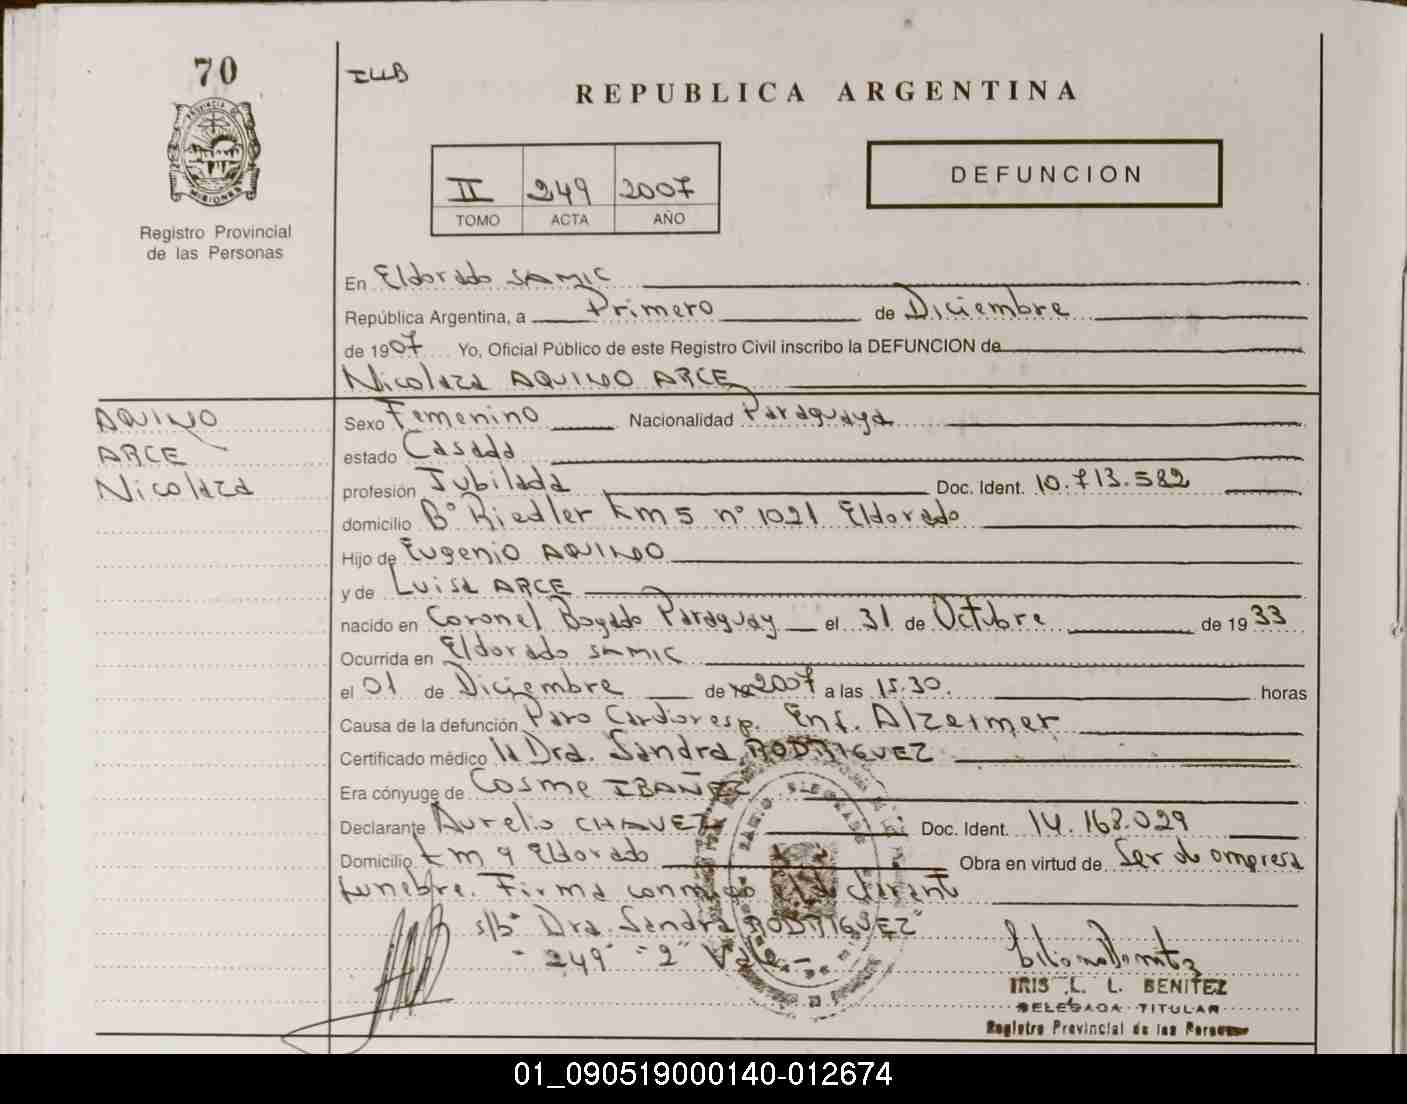 70
ILLB
REPUBLICA ARGENTINA
PROVINCIA DE
MISIONES
Registro Provincial
de las Personas
II 249 2007
TOMO ACTA AÑO
DEFUNCION
En Eldorado SAMIC
República Argentina, a Primero de Diciembre
de 1907 Yo, Oficial Público de este Registro Civil inscribo la DEFUNCION de
Nicolaza AQUINO ARCE
AQUINO
ARCE
Nicolaza
Sexo Femenino Nacionalidad Paraguaya
estado Casada
profesión Jubilada Doc. Ident. 10.713.582
domicilio B° Riedler Km 5 n° 1021 Eldorado
Hijo de Eugenio AQUINO
y de Luisa ARCE
nacido en Coronel Bogado Paraguay el 31 de Octubre de 1933
Ocurrida en Eldorado SAMIC
el 01 de Diciembre de 2007 a las 15.30. horas
Causa de la defunción Paro Cardioresp. Enf. Alzeimer
Certificado médico la Dra. Sandra RODRIGUEZ
Era cónyuge de Cosme IBAÑEZ
Declarante Aurelio CHAVEZ Doc. Ident. 14.168.029
Domicilio Km 9 Eldorado Obra en virtud de Ser de empresa
funebre. Firma conmigo el declarante
s/b" Dra. Sandra RODRIGUEZ"
- 249" - 2" Vale.-
IRIS L. L. BENITEZ
DELEGADA TITULAR
Registro Provincial de las Personas
01_090519000140-012674